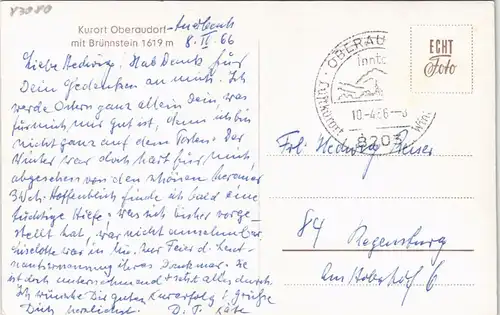 83080
Kurort Oberaudorf-Auerbach
mit Brünnstein 1619 m 8. IV 66
Liebe Hedwig. Hab Dank für
Dein Gedenken an mich. Ich
werde Ostern ganz allein sein, was
für mich nur gut ist, denn ich bin
nicht ganz auf dem Posten. Der
Winter war doch hart für mich,
abgesehen von den schönen Meraner
3 Wch. Hoffentlich finde ich bald eine
tüchtige Hilfe, was sich bisher vorge-
stellt hat, war nicht annehmbar.
Liselotte war in Mü. zur Feier d. Leut-
nantsernennung ihres Sie
ist doch unternehmend + setzt alles durch.
Ich wünsche Dir guten Kurerfolg & grüße
Dich herzlichst. D. T. Käte
OBERAU
Luftkurort
10.-4.66-
8203
ECHT
Foto
Frl. Hedwig Reiser
84 Regensburg
Am Hofberg 6